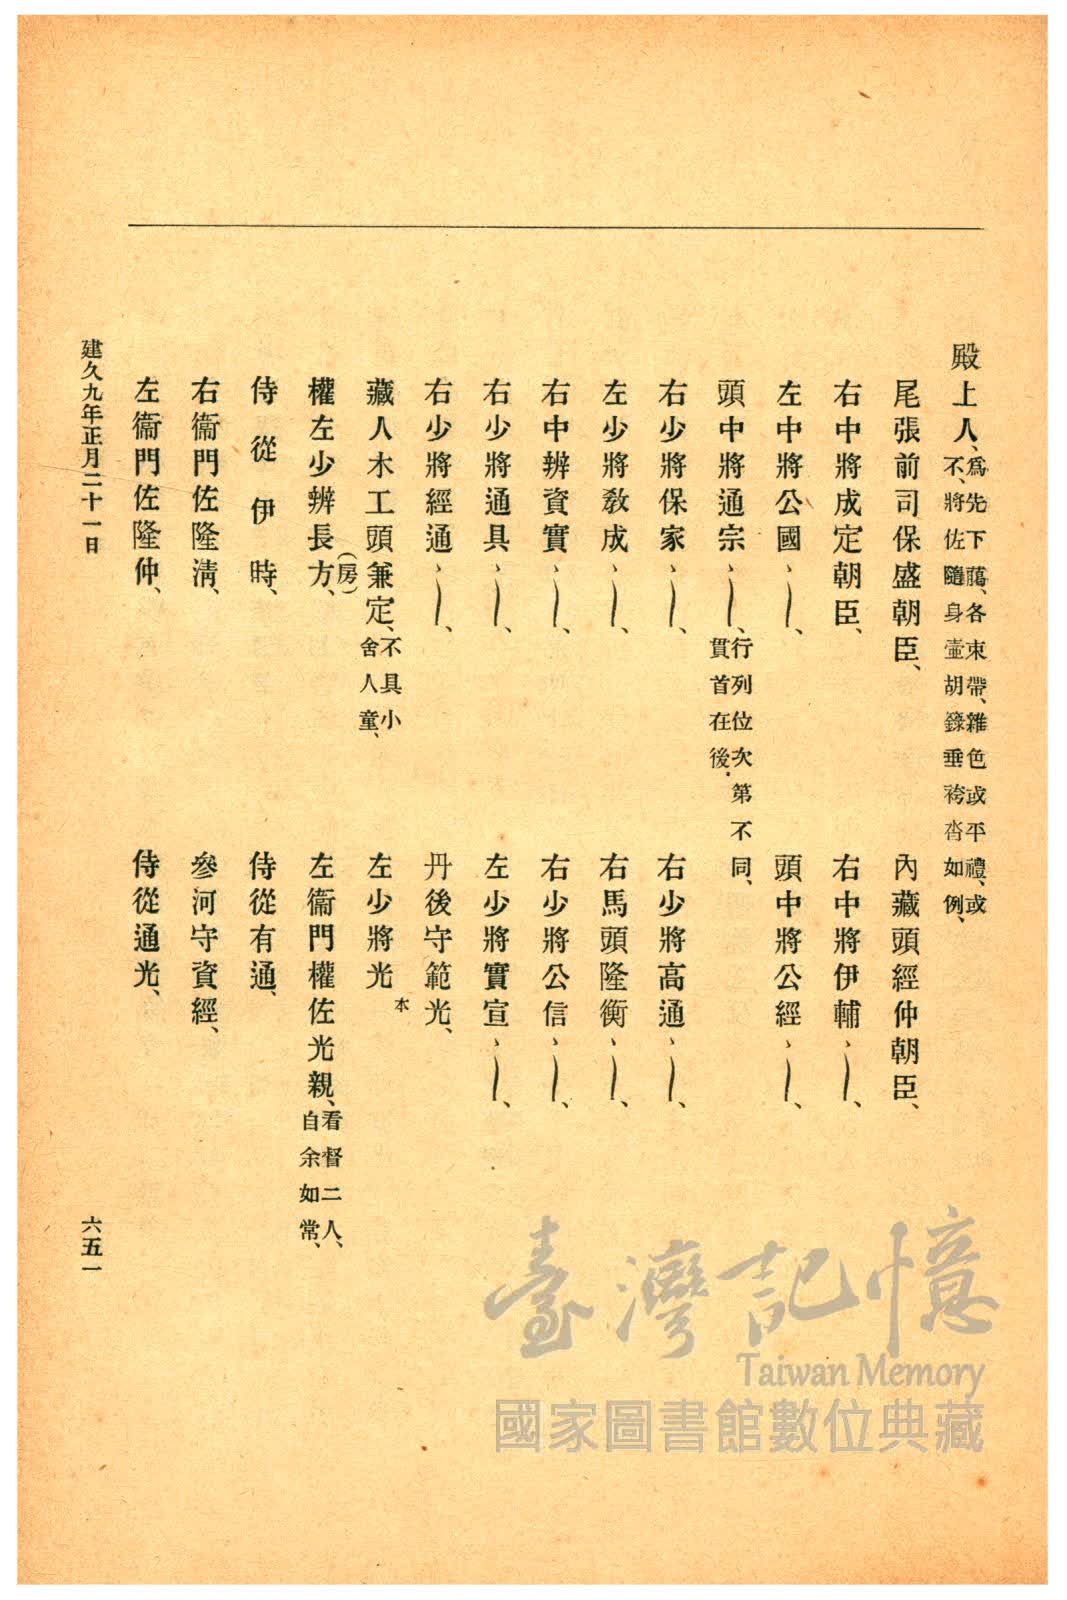 殿上人、爲先下﨟、各束帶、雜色或平禮、或
不、將佐隨身壷胡籙垂袴沓如例、
尾張前司保盛朝臣、
內藏頭經仲朝臣、
右中將成定朝臣、
右中將伊輔、〳〵、
左中將公國、〳〵、
頭中將公經、〳〵、
頭中將通宗、〳〵、行列位次第不同、
貫首在後、
右少將保家、〳〵、
右少將高通、〳〵、
左少將敎成、〳〵、
右馬頭隆衡、〳〵、
右中辨資實、〳〵、
右少將公信、〳〵、
右少將通具、〳〵、
左少將實宣、〳〵、
右少將經通、〳〵、
丹後守範光、
藏人木工頭兼定、不具小
舍人童、
左少將光本
權左少辨長方(房)、
左衞門權佐光親、看督二人、
自余如常、
侍從伊時、
侍從有通、
右衞門佐隆淸、
參河守資經、
左衞門佐隆仲、
侍從通光、
建久九年正月二十一日
六五一
臺灣記憶
Taiwan Memory
國家圖書館數位典藏